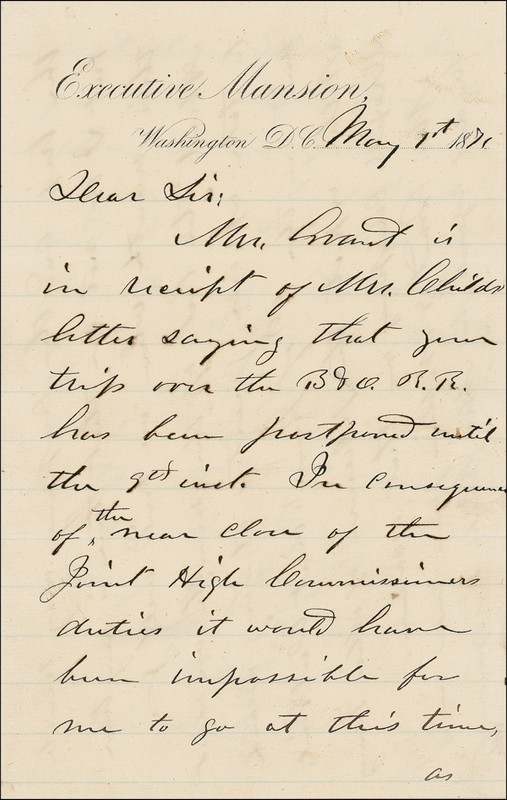 Executive Mansion,
Washington D.C. May 1st 1871
Dear Sir;
Mrs. Grant is
in receipt of Mrs. Childs
letter saying that your
trip over the B & O. R. R.
has been postponed until
the 9th inst. In consequence
of the near close of the
Joint High Commissioners
duties it would have
been impossible for
me to go at this time,
as